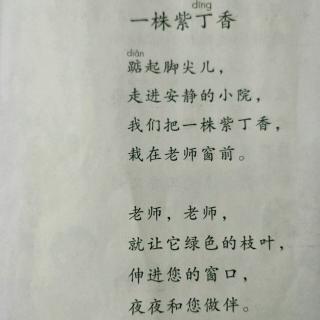 dīng
一株紫丁香
diǎn
踮起脚尖儿，
走进安静的小院，
我们把一株紫丁香，
栽在老师窗前。
老师，老师，
就让它绿色的枝叶，
伸进您的窗口，
夜夜和您做伴。